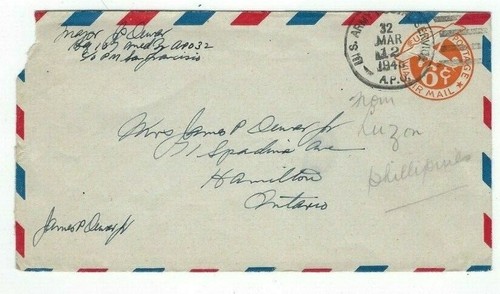 Major J P Dewar
APO 32
c/o P.M. San Francisco
U.S. ARMY
32
MAR
12
1945
A.P.O.
POSTAGE
6¢
AIR MAIL
from
Luzon
Phillipines
Mrs James P Dewar Jr
71 Spadina Ave
Hamilton
Ontario
James P Dewar Jr